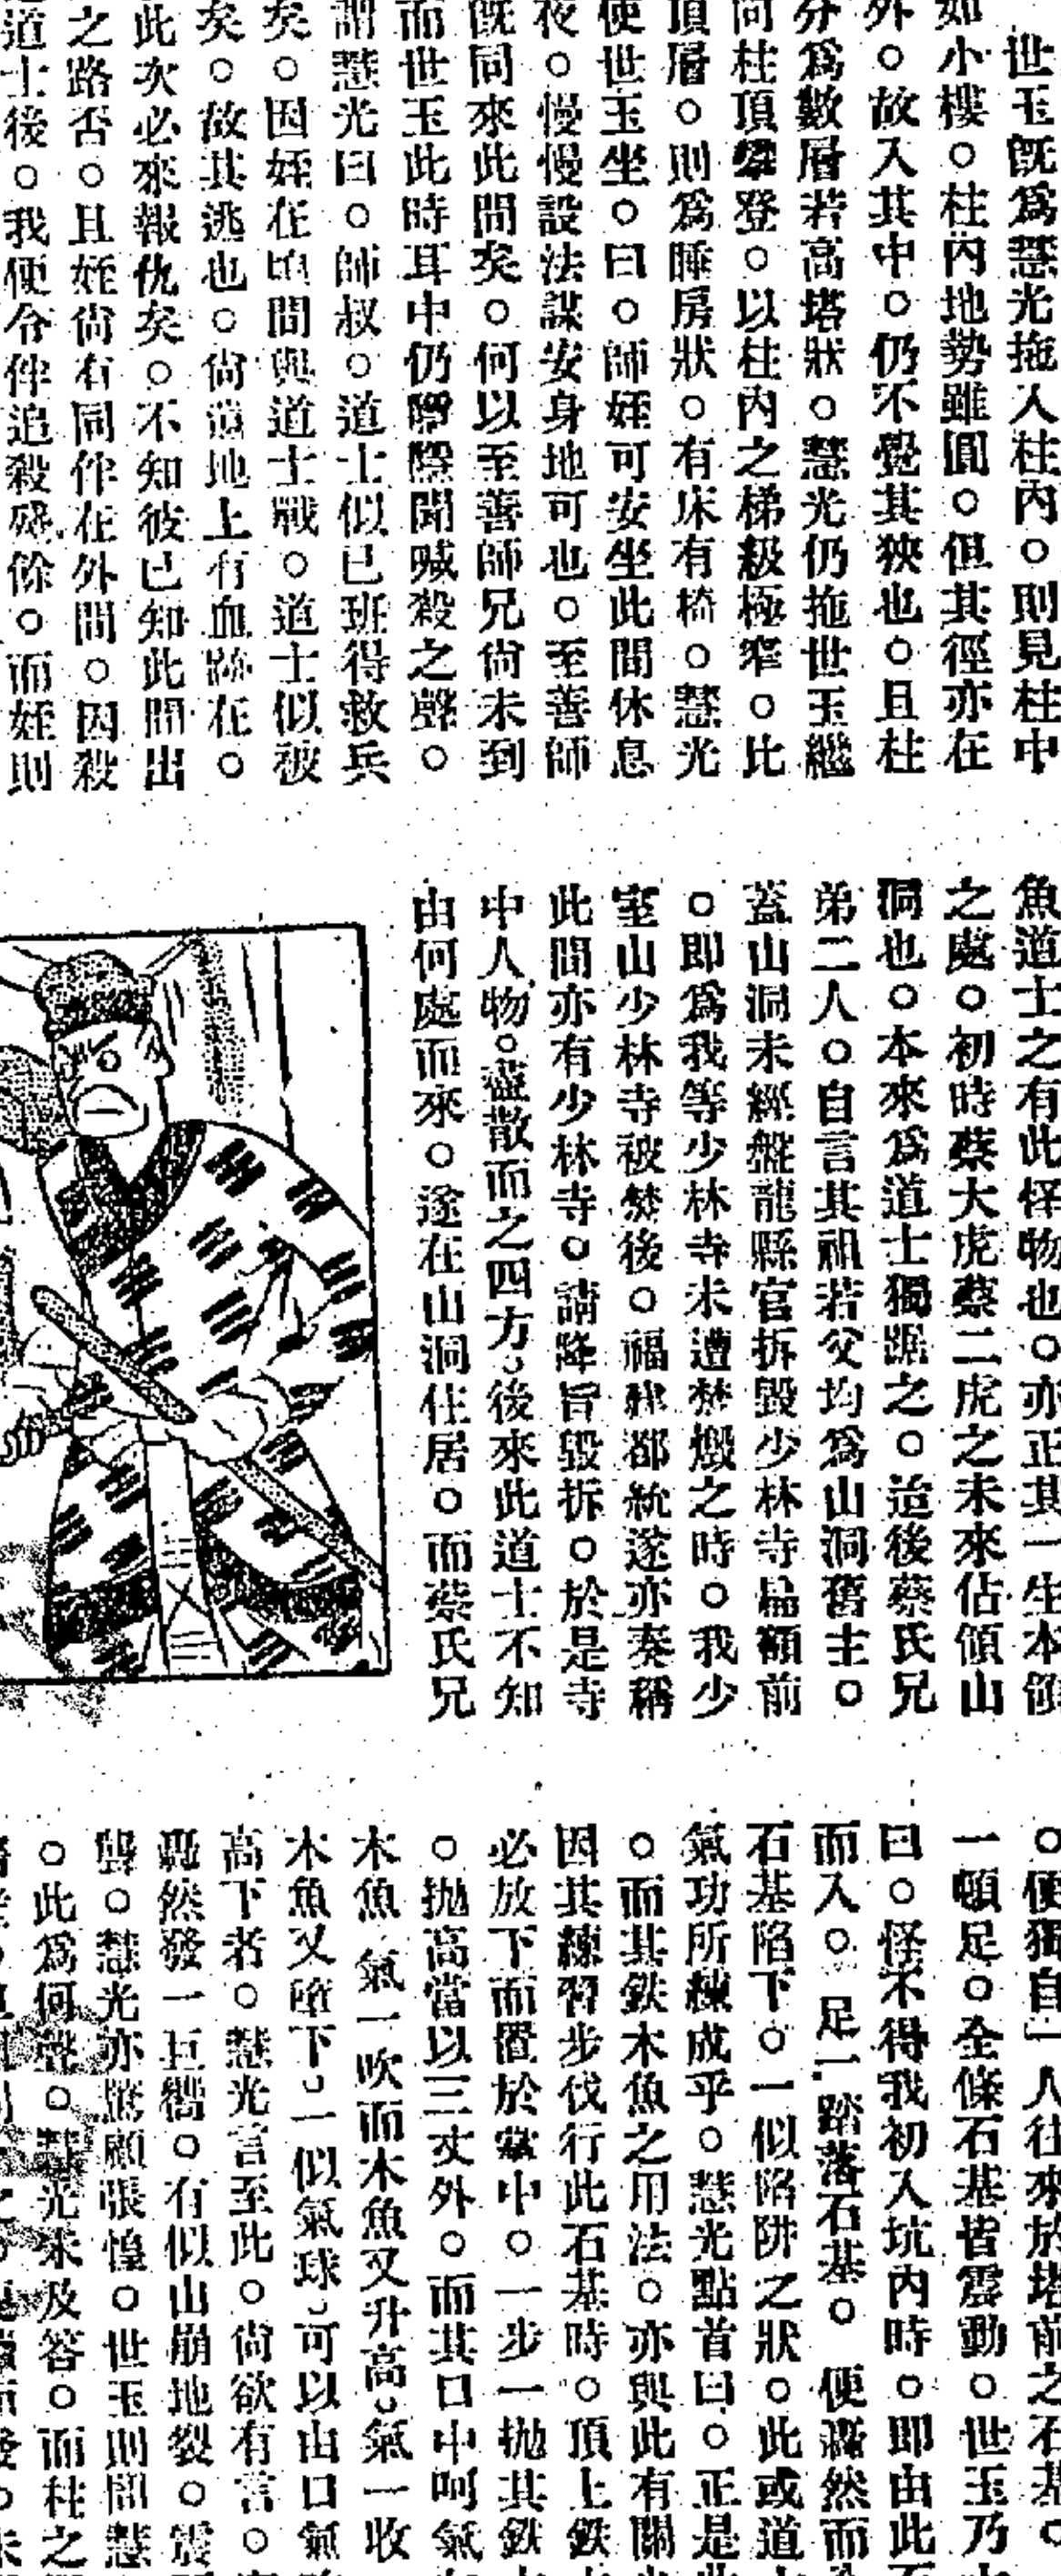 世玉旣爲慧光拖入柱內。則見柱中
如小樓。柱內地勢雖圓。但其徑亦在
外。故入其中。仍不覺其狹也。且柱
分爲數層若高塔狀。慧光仍拖世玉繼
向柱頂攀登。以柱內之梯級極窄。比
頂層。則爲睡房狀。有床有椅。慧光
使世玉坐。曰。師姪可安坐此間休息
夜。慢慢設法謀安身地可也。至善師
旣同來此間矣。何以至善師兄尙未到
而世玉此時耳中仍隱隱聞喊殺之聲。
謂慧光曰。師叔。道士似已班得救兵
矣。因姪在坑間與道士戰。道士似被
矣。故其逃也。尙遺地上有血跡在。
此次必來報仇矣。不知彼已知此間出
之路否。且姪尙有同伴在外間。因殺
道士後。我便令伴追殺殘餘。而姪則
魚道士之有此怪物也。亦正其一生本領
之處。初時蔡大虎蔡二虎之未來佔領山
洞也。本來爲道士獨踞之。迨後蔡氏兄
弟二人。自言其祖若父均爲山洞舊主。
蓋山洞未經盤龍縣官拆毀少林寺扁額前
。即爲我等少林寺未遭焚燬之時。我少
室山少林寺被焚後。福建都統遂亦奏稱
此間亦有少林寺。請降旨毀拆。於是寺
中人物。盡散而之四方。後來此道士不知
由何處而來。遂在山洞住居。而蔡氏兄
。便獨自一人往來於塔前之石基。
一頓足。全條石基皆震動。世玉乃
曰。怪不得我初入坑內時。即由此
而入。足一踏落石基。便轟然而
石基陷下。一似陷阱之狀。此或道
氣功所練成乎。慧光點首曰。正是
。而其鉄木魚之用法。亦與此有關
因其練習步伐行此石基時。頂上鉄
必放下而置於掌中。一步一拋其鉄
。拋高當以三丈外。而其口中呵氣
木魚 氣一吹而木魚又升高。氣一收
木魚又墮下。一似氣球。可以由口氣
高下者。慧光言至此。尙欲有言。
轟然發一巨響。有似山崩地裂。震
聾。慧光亦驚顧張惶。世玉則問慧
。此爲何聲。慧光未及答。而柱之